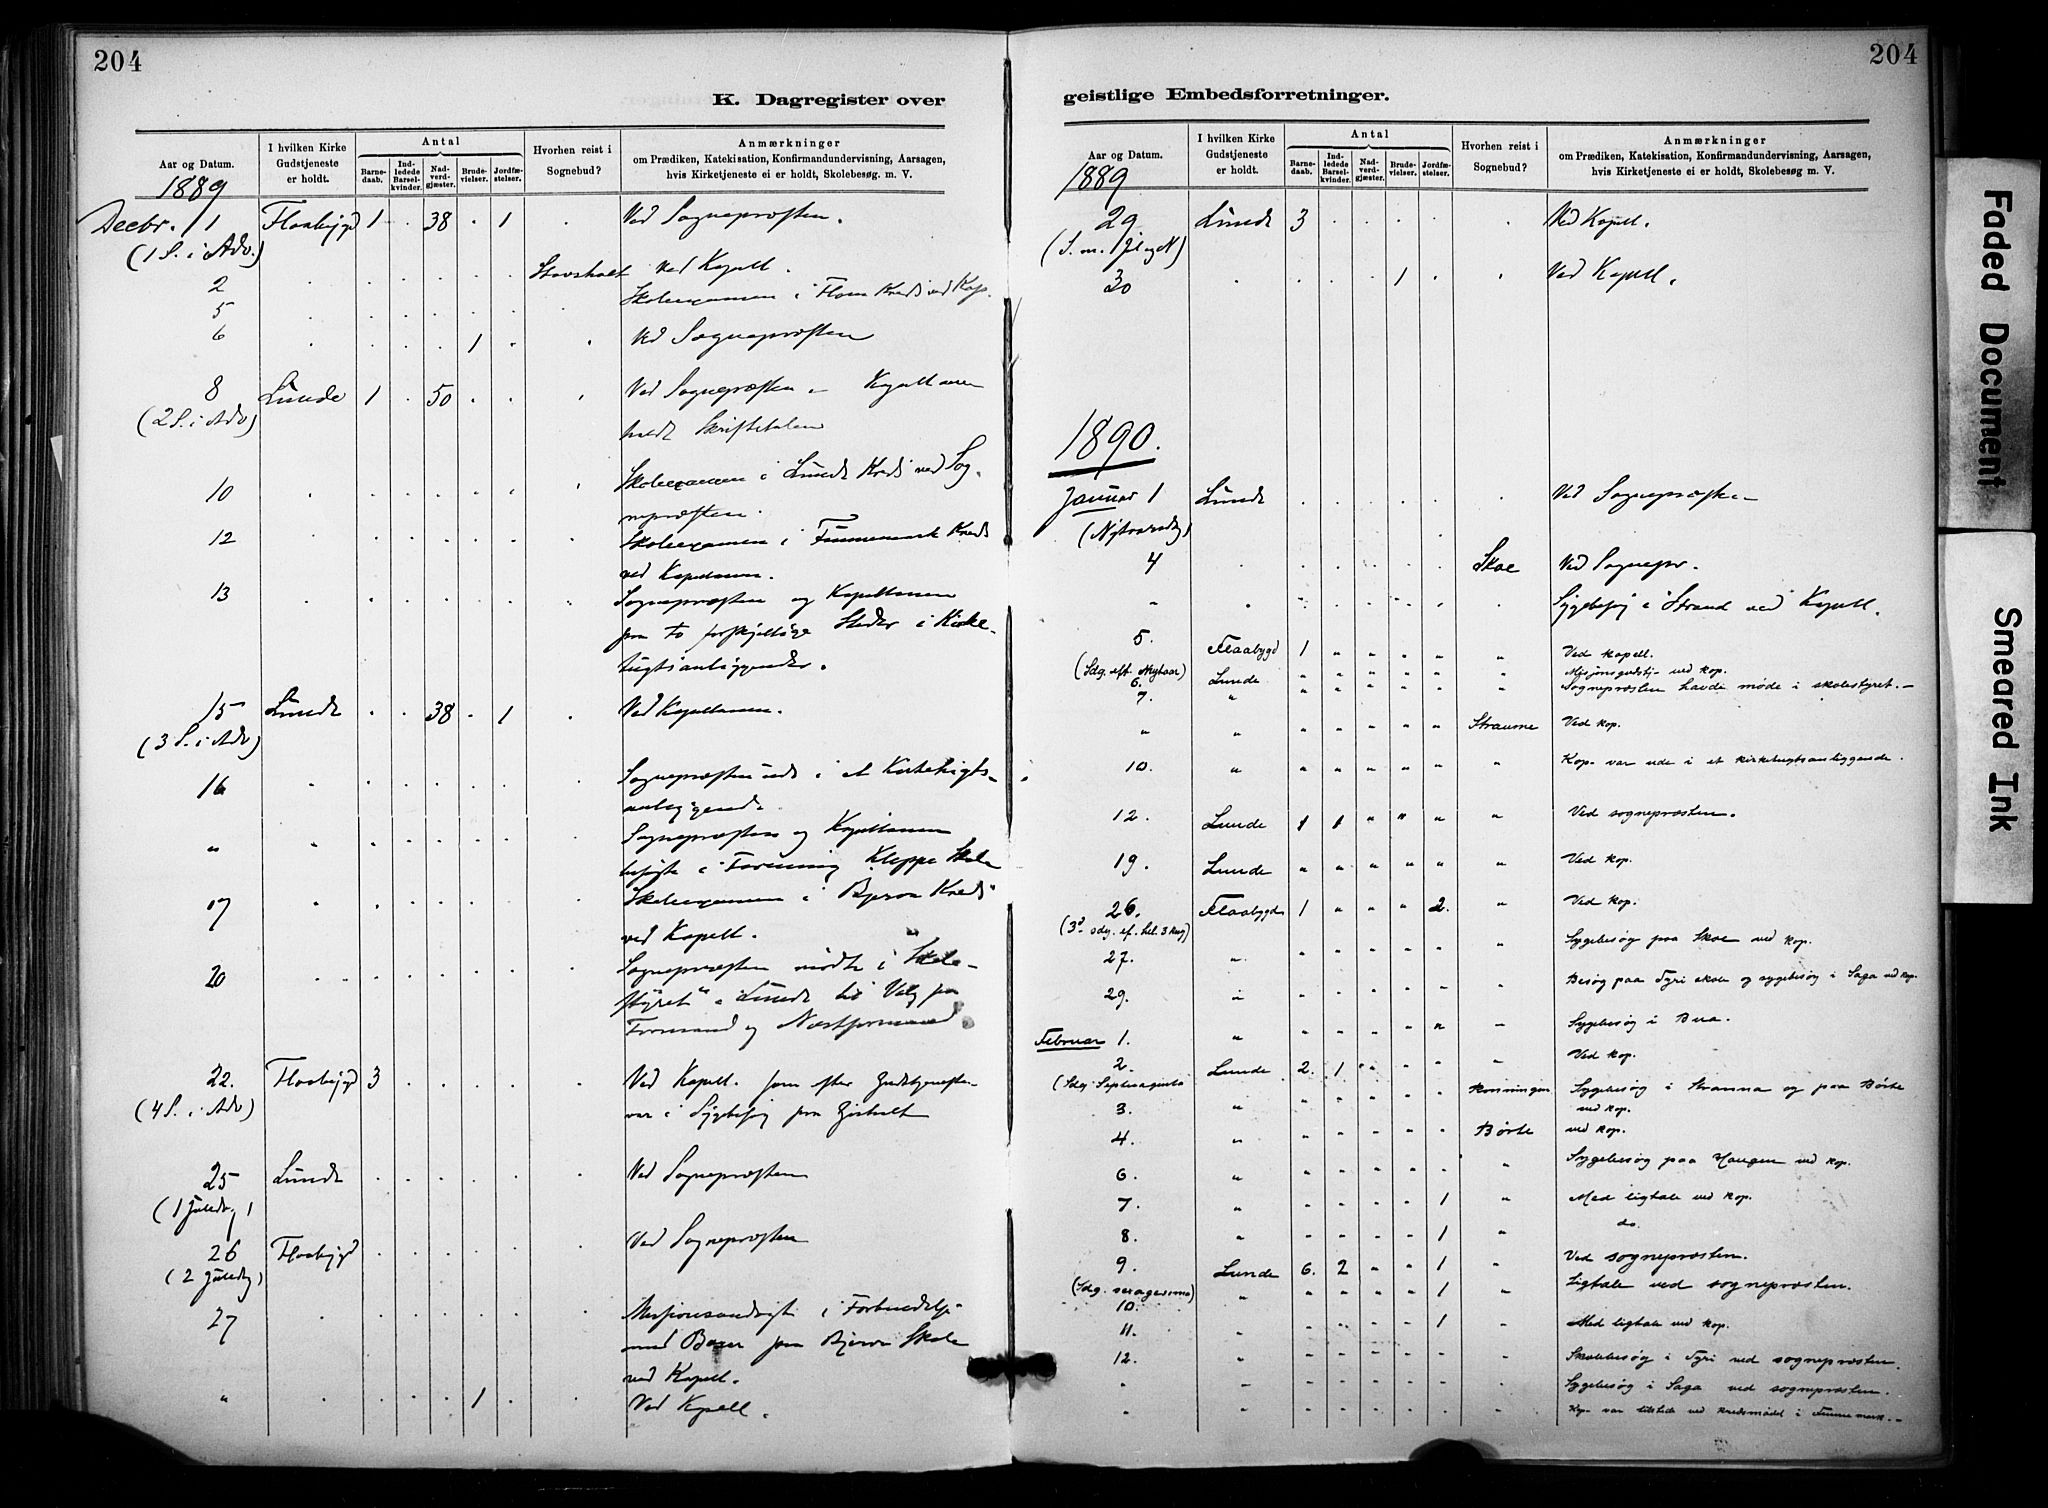 204
K. Dagregister over
Aar og Datum.
I hvilken Kirke Gudstjeneste er holdt.
Antal
Barnedaab.
Indledede Barselkvinder.
Nadverdgjæster.
Brudevielser.
Jordfæstelser.
Hvorhen reist i Sognebud?
Anmærkninger
om Prædiken, Katekisation, Konfirmandundervisning, Aarsagen,
hvis Kirketjeneste ei er holdt, Skolebesøg. m. V.
1889
Decbr. 1 Flaabygd 1 . 38 . 1 . Ved Sognepræsten.
(1 S. i Adv.)
2 Stavsholt Ved Kapell.
5 Skoleexamen i Flom Kreds ved Kap.
6 1 Ved Sognepræsten
8 Lunde 1 . 50 . . . Ved Sognepræsten – Kapellanen
(2 S. i Adv) holdt Skriftetalen
10 Skoleexamen i Lunde Kreds ved Sog-
nepræsten.
12 Skoleexamen i Kreds
ved Kapellanen.
13 Sognepræsten og Kapellanen
paa to forskjellige Steder i Kirke-
tugtsanliggender.
15 Lunde . . 38 . 1 . Ved Kapellanen.
(3 S. i Adv)
16 Sognepræsten ude i et Kirketugts-
anliggende.
" Sognepræsten og Kapellanen
i Forening Kleppe Skole
17 Skoleexamen i Bjerva Kreds
ved Kapell.
20 Sognepræsten mødte i "Skole-
styret" i Lunde til Valg paa
Formand og Næstformand.
22. Flaabygd 3 Ved Kapell. som efter Gudstjenesten
(4 S. i Adv) var i Sygebesøg paa
25 Lunde Ved Sognepræsten
(1 Juledag)
26 Flaabygd Ved Sognepræsten
(2 Juledag)
27 i Forbindelse
med Bazar paa Bjerva Skole
ved Kapell.
" 1 Ved Kapell.
204
geistlige Embedsforretninger.
Aar og Datum.
I hvilken Kirke Gudstjeneste er holdt.
Antal
Barnedaab.
Indledede Barselkvinder.
Nadverdgjæster.
Brudevielser.
Jordfæstelser.
Hvorhen reist i Sognebud?
Anmærkninger
om Prædiken, Katekisation, Konfirmandundervisning, Aarsagen,
hvis Kirketjeneste ei er holdt, Skolebesøg m. V.
1889
29 Lunde 3 Ved Kapell.
(S. m. Jul og N)
30 1 Ved Kapell.
1890.
Januar 1 Lunde Ved Sognepræsten
(Nytaarsdag)
4 Skoe Ved Sognepr.
" Sygebesøg i Strand ved Kapell.
5. Flaabygd 1 " " " " " Ved kapell.
(Sdg. eft. Nytaar)
6. Lunde " " " " " " Misjonsgudstj. ved kap.
7. " " " " " " " Sognepræsten havde møde i skolestyret. –
" " " " " " " Straume Ved kap.
10. " " " " " " " Kap. var ude i et kirketugtsanliggende.
12. Lunde 1 1 " " " " Ved sognepræsten.
19. Lunde " " " " " " Ved kap.
26. Flaabygd 1 " " " 2. " Ved kap.
(3d sdg. ef. hel. 3 kong)
27. " Sygebesøg paa Skoe ved kap.
29. " Besøg paa Tyri skole og sygebesøg i Saga ved kap.
Februar 1. " Sygebesøg i Bua.
2. Lunde 2. 1 Ved kap.
(Sdg. Septuagesima)
3. " Sygebesøg i Stranna og paa Børte
ved kap.
4. " Børte ved kap.
6. " Sygebesøg paa Haugen ved kap.
7. " 1 " Med ligtale ved kap.
8. 1 " do.
9. Lunde 6. 2 " " 1 " Ved sognepræsten.
(Sdg. sexagesima)
10. " 1 Ligtale ved sognepræsten.
11. " 1 Med ligtale ved kap.
12. " Skolebesøg i Tyri ved sognepræsten.
" Sygebesøg i Saga ved sognepræsten.
" Kap. var tilstede ved kredsmødet i –
Faded Document
Smeared Ink